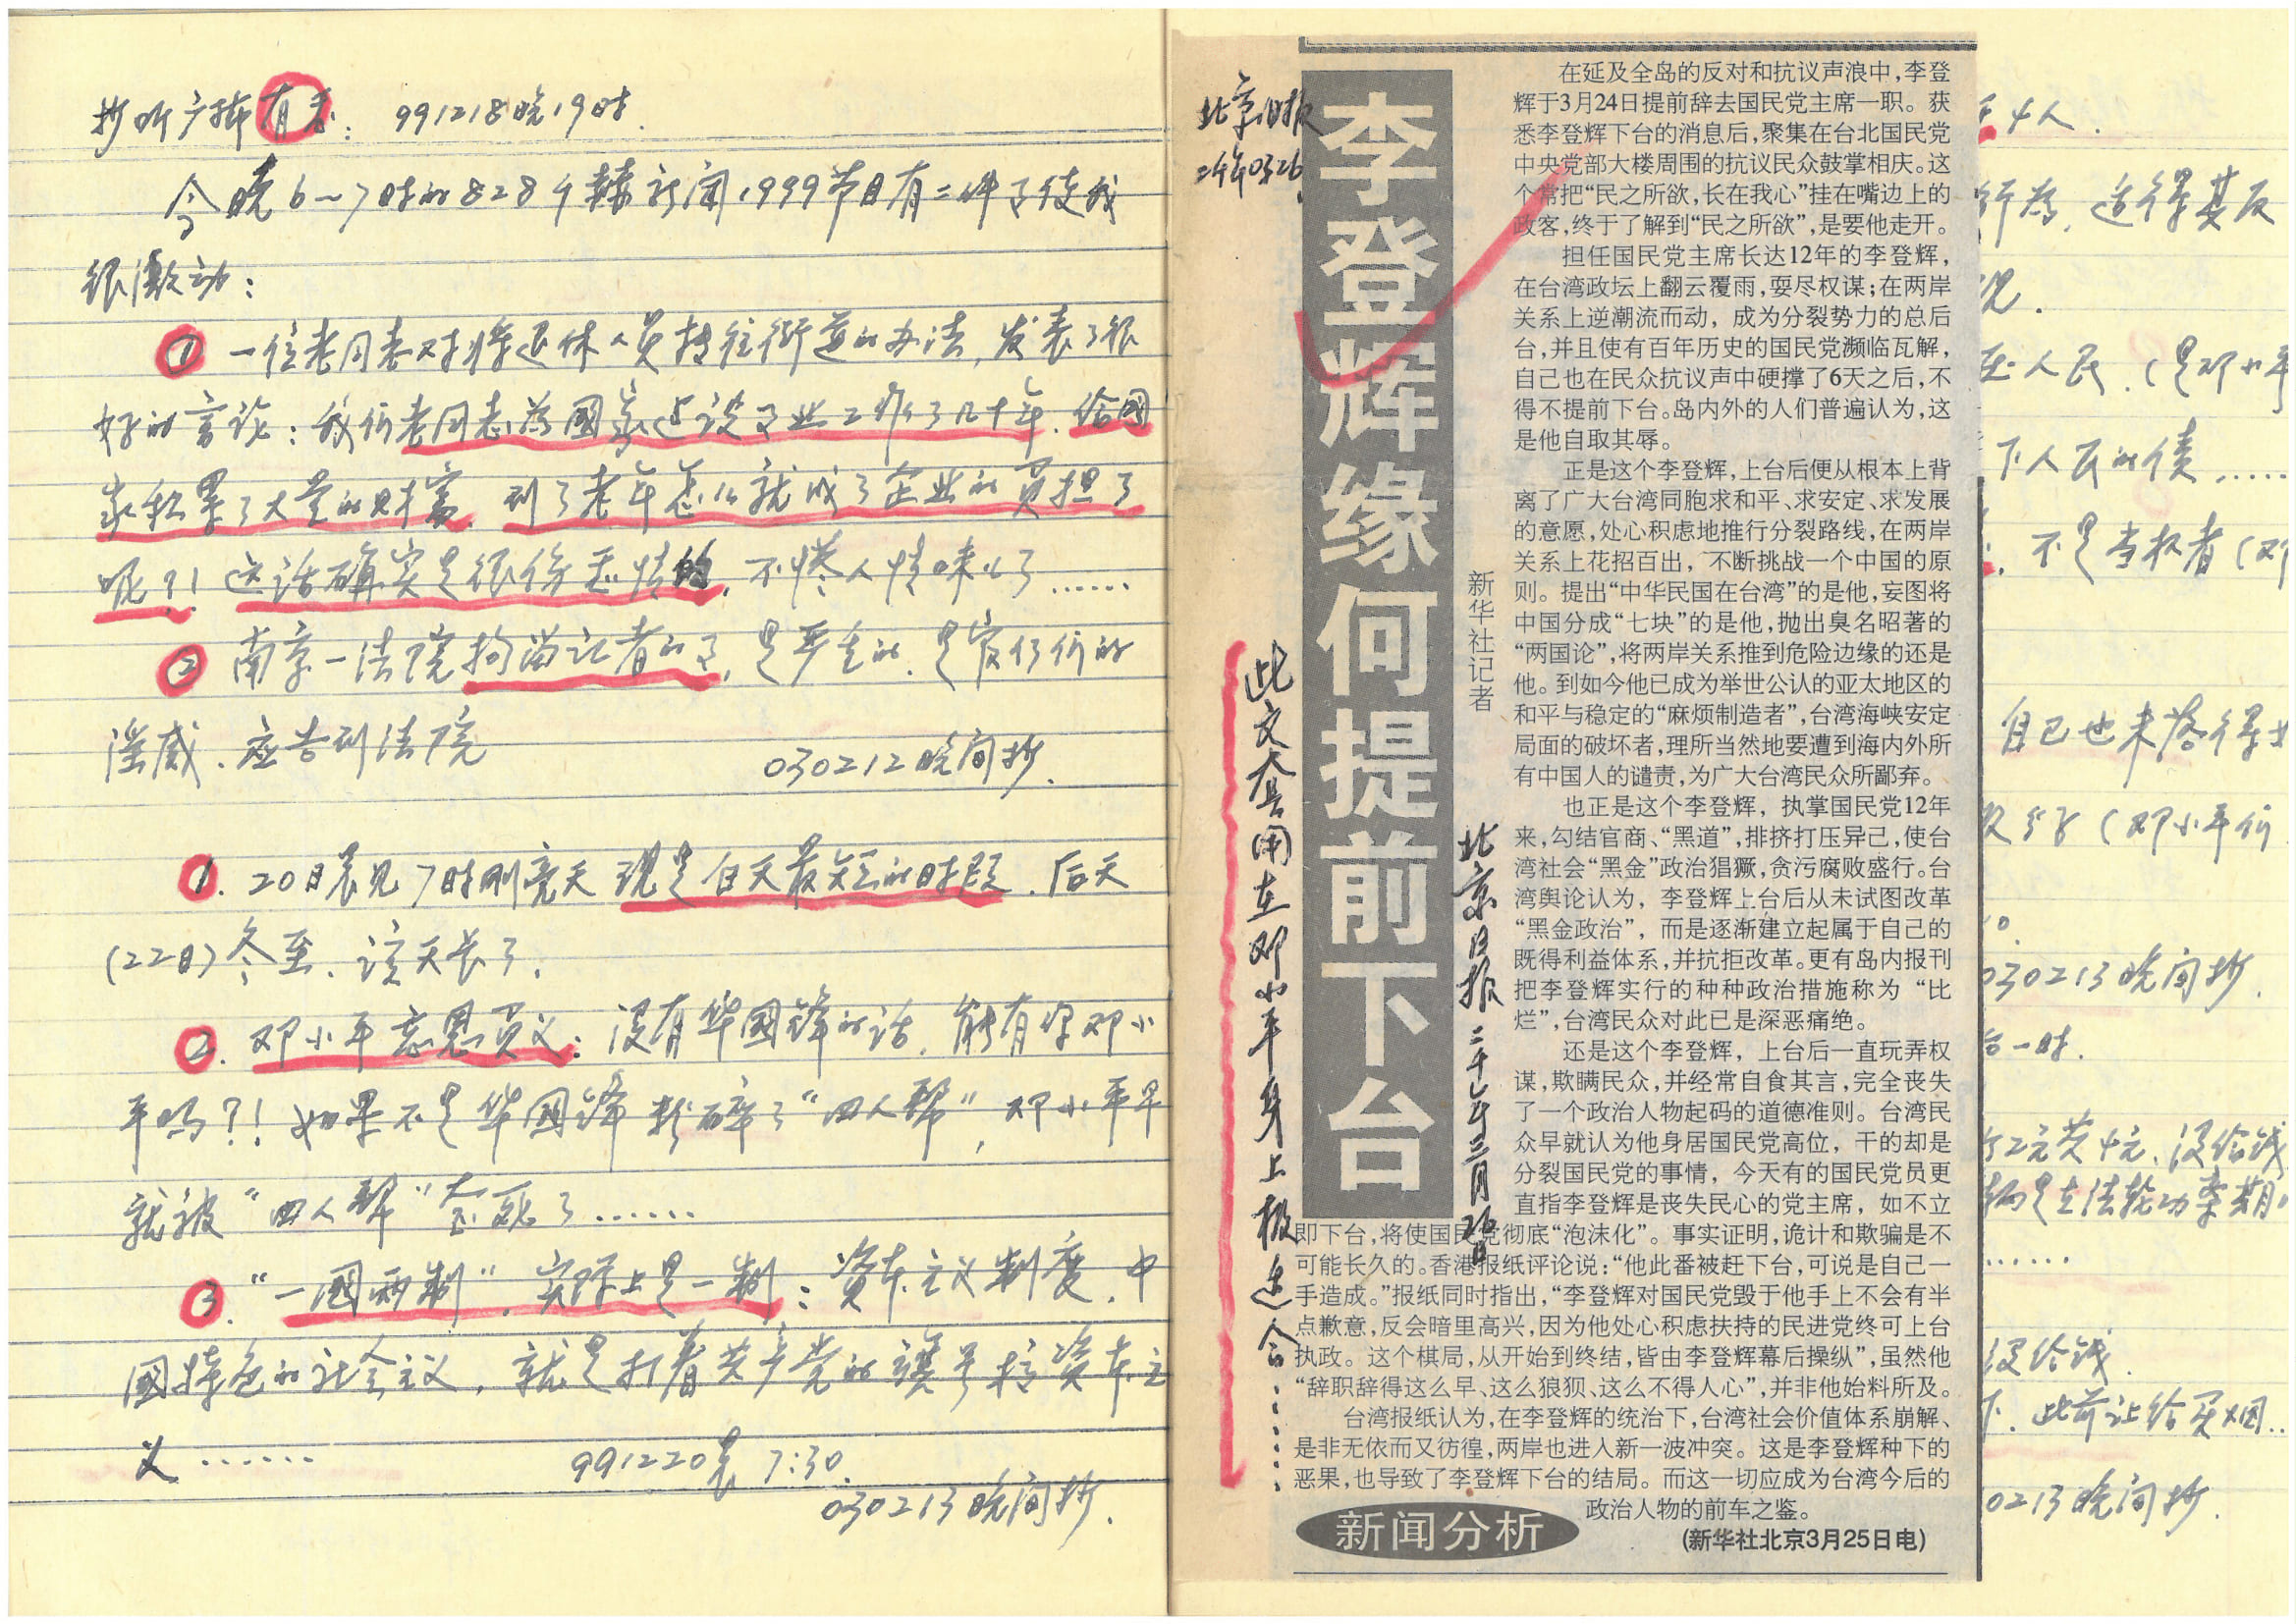 抄听广播有感：991218晚19时.
今晚6～7时的828千赫新闻1999节目有二件事使我
很激动：
① 一位老同志对将退休人员转往街道的办法，发表了很
好的言论：我们老同志为國家建设事业工作了几十年、给國
家积累了大量的财富，到了老年怎么就成了企业的负担了
呢?! 这话确实是很伤感情的，不懂人情味儿了……
② 南京一法院拘留记者的事，是严重的、是官僚们的
淫威、应告到法院
030212晚间抄.
1. 20日晨见7时刚亮天 现是白天最短的时段. 后天
(22日)冬至、该天长了.
2. 邓小平忘恩负义：没有华國锋的话，能有你邓小
平吗?! 如果不是华國锋粉碎了“四人帮”，邓小平早
就被“四人帮”整死了……
3. “一國两制”，实际上是一制：资本主义制度，中
國特色的社会主义，就是打着共产党的旗号搞资本主
义……
991220晨 7:30.
030213晚间抄.
北京日报
二千年0326
李登辉缘何提前下台
新华社记者
北京日报二千年三月26日
此文套用在邓小平身上极适合……
在延及全岛的反对和抗议声浪中，李登
辉于3月24日提前辞去国民党主席一职。获
悉李登辉下台的消息后，聚集在台北国民党
中央党部大楼周围的抗议民众鼓掌相庆。这
个常把“民之所欲，长在我心”挂在嘴边上的
政客，终于了解到“民之所欲”，是要他走开。
担任国民党主席长达12年的李登辉，
在台湾政坛上翻云覆雨，耍尽权谋；在两岸
关系上逆潮流而动，成为分裂势力的总后
台，并且使有百年历史的国民党濒临瓦解，
自己也在民众抗议声中硬撑了6天之后，不
得不提前下台。岛内外的人们普遍认为，这
是他自取其辱。
正是这个李登辉，上台后便从根本上背
离了广大台湾同胞求和平、求安定、求发展
的意愿，处心积虑地推行分裂路线，在两岸
关系上花招百出，不断挑战一个中国的原
则。提出“中华民国在台湾”的是他，妄图将
中国分成“七块”的是他，抛出臭名昭著的
“两国论”，将两岸关系推到危险边缘的还是
他。到如今他已成为举世公认的亚太地区的
和平与稳定的“麻烦制造者”，台湾海峡安定
局面的破坏者，理所当然地要遭到海内外所
有中国人的谴责，为广大台湾民众所鄙弃。
也正是这个李登辉，执掌国民党12年
来，勾结官商、“黑道”，排挤打压异己，使台
湾社会“黑金”政治猖獗，贪污腐败盛行。台
湾舆论认为，李登辉上台后从未试图改革
“黑金政治”，而是逐渐建立起属于自己的
既得利益体系，并抗拒改革。更有岛内报刊
把李登辉实行的种种政治措施称为“比
烂”，台湾民众对此已是深恶痛绝。
还是这个李登辉，上台后一直玩弄权
谋，欺瞒民众，并经常自食其言，完全丧失
了一个政治人物起码的道德准则。台湾民
众早就认为他身居国民党高位，干的却是
分裂国民党的事情，今天有的国民党员更
直指李登辉是丧失民心的党主席，如不立
即下台，将使国民党彻底“泡沫化”。事实证明，诡计和欺骗是不
可能长久的。香港报纸评论说：“他此番被赶下台，可说是自己一
手造成。”报纸同时指出，“李登辉对国民党毁于他手上不会有半
点歉意，反会暗里高兴，因为他处心积虑扶持的民进党终可上台
执政。这个棋局，从开始到终结，皆由李登辉幕后操纵”，虽然他
“辞职辞得这么早、这么狼狈、这么不得人心”，并非他始料所及。
台湾报纸认为，在李登辉的统治下，台湾社会价值体系崩解、
是非无依而又彷徨，两岸也进入新一波冲突。这是李登辉种下的
恶果，也导致了李登辉下台的结局。而这一切应成为台湾今后的
政治人物的前车之鉴。
(新华社北京3月25日电)
新闻分析
人.
行为，适得其反
况.
人民.(是邓小平
下人民的债……
不是当权者(邓
自己也未落得
分子(邓小平们
030213晚间抄.
台一时.
没给钱
……
没给钱.
下. 此前让给买烟…
0213晚间抄.